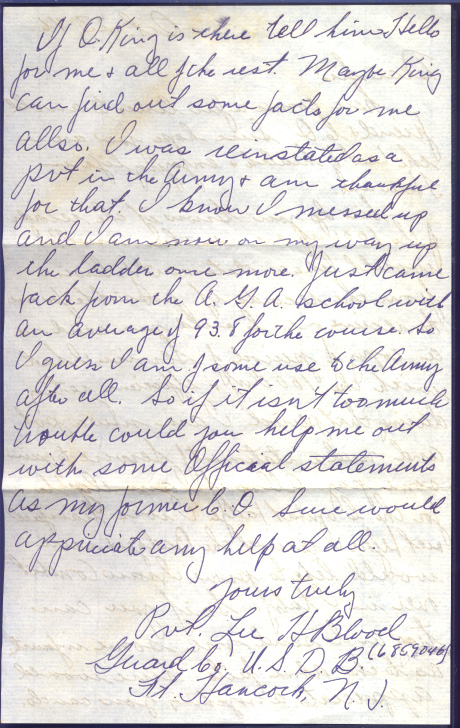 If O. King is there tell him Hello
for me & all of the rest. Maybe King
can find out some facts for me
allso. I was reinstated as a
pvt in the Army & am thankful
for that. I know I messed up
and I am now on my way up
the ladder one more. Just came
back from the A. G. A. school with
an average of 93.8 for the course. So
I guess I am of some use to the Army
after all. So if it isn't too much
trouble could you help me out
with some Official statements
as my former C.O. Sure would
appriciate any help at all.
Yours truly
Pvt. Lee H Blood
Guard Co. U.S.D.B. (6859046)
Ft. Hancock, N.J.